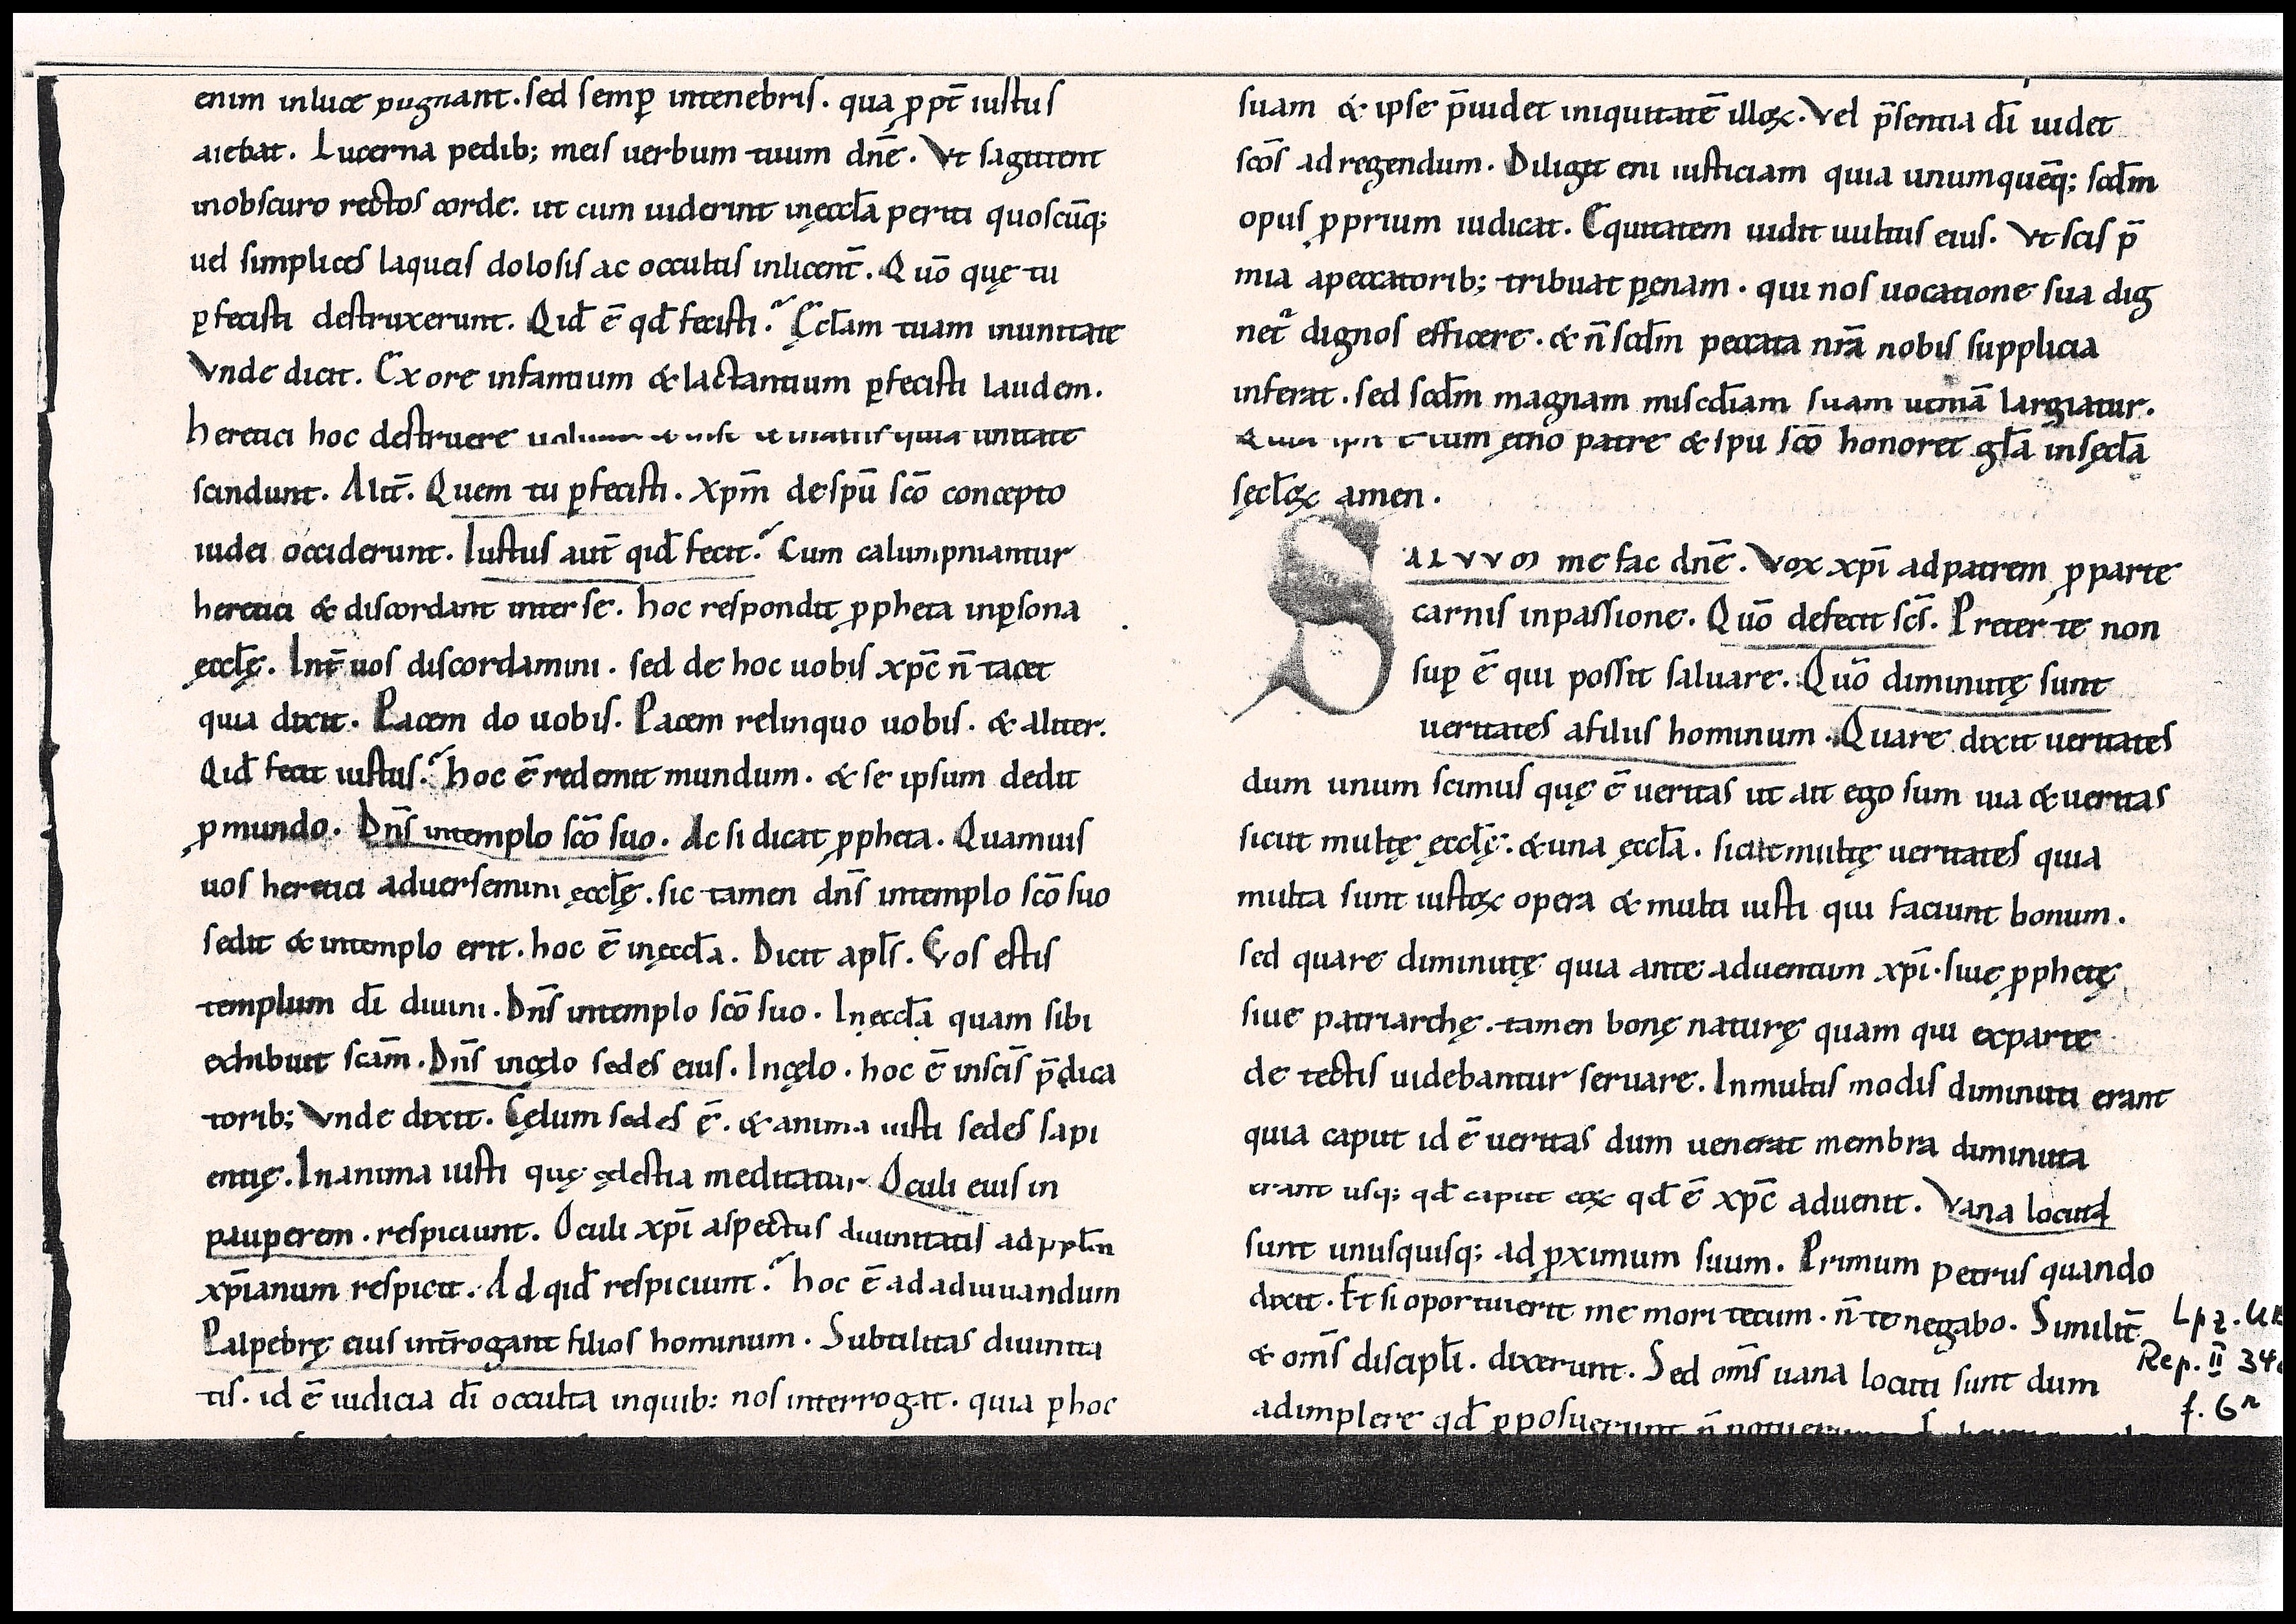 enim inluce pugnant. sed semꝑ intenebris. qua ꝓpt̄ iustus
aiebat. Lucerna pedib; meis uerbum tuum dn̄e. Vt sagittent
inobscuro rectos corde. ut cum uiderint inęccła periti quoscūq;
uel simplices laqueis dolosis ac occultis inlicent̄. Quō quę tu
ꝑfecisti destruxerunt. Qid̄ ē qd̄ fecisti? Ęcłam tuam inunitate
Vnde dicit. Ex ore infantium & lactantium ꝑfecisti laudem.
heretici hoc destruere unitate
scindunt. Alit̄. Quem tu ꝑfecisti. Xpm̄ despū scō concepto
iudei occiderunt. Iustus aut̄ qid̄ fecit? Cum calumpniantur
heretici & discordant inter se. hoc respondit ꝓpheta inꝑsona
ęccłę. Int̄ uos discordamini. sed de hoc uobis xpc̄ n̄ tacet
quia dixit. Pacem do uobis. Pacem relinquo uobis. & aliter.
Qid̄ fecit iustus? hoc ē redemit mundum. & se ipsum dedit
ꝓmundo. Dn̄s intemplo scō suo. Ac si dicat ꝓpheta. Quamuis
uos heretici aduersemini ęccłę. sic tamen dn̄s intemplo scō suo
sedit & intemplo erit. hoc ē inęccła. Dicit apłs. Vos estis
templum dī diuini. Dn̄s intemplo scō suo. Inęccła quam sibi
exhibuit scām. Dn̄s incęlo sedes eius. Incęlo. hoc ē inscīs p̄dica
torib; Vnde dixit. Cęlum sedes ē. & anima iusti sedes sapi
entię. Inanima iusti quę cęlestia meditatur Oculi eius in
pauperem. respiciunt. Oculi xpī aspectus diuinitatis ad ppłm
xpīanum respicit. Ad qid̄ respiciunt? hoc ē adadiuuandum
Palpebrę eius int̄rogant filios hominum. Subtilitas diuinita
tis. id ē iudicia dī occulta inquib; nos interrogat. quia ꝑhoc
suam & ipse p̄uidet iniquitatē illoꝝ. Vel p̄sentia dī uidet
scōs adregendum. Diligit eni iusticiam quia unumquēq; scdm̄
opus ꝓprium iudicat. Equitatem uidit uultus eius. Vt scīs p̄
mia apeccatorib; tribuat pęnam. qui nos uocatione sua dig
net̄ dignos efficere. & n̄ scdm̄ peccata nrā nobis supplicia
inferat. sed scdm̄ magnam miscdīam suam ueniā largiatur.
cum ętn̄o patre & spu scō honoret głā insęcła
sęcłoꝝ amen.
SALVVM me fac dn̄e. Vox xpī adpatrem ꝓparte
carnis inpassione. Quō defecit scs̄. Preter te non
suꝑ ē qui possit saluare. Quō diminutę sunt
ueritates afiliis hominum. Quare dixit ueritates
dum unum scimus quę ē ueritas ut ait ego sum uia & ueritas
sicut multę ęccłę. & una ęccła. sicut multę ueritates quia
multa sunt iustoꝝ opera & multi iusti qui faciunt bonum.
sed quare diminutę quia ante aduentum xpī. siue ꝓphetę
siue patriarchę. tamen bonę naturę quam qui exparte
de tectis uidebantur seruare. Inmultis modis diminuti erant
quia caput id ē ueritas dum uenerat membra diminuta
erant usq; qd̄ caput eoꝝ qd̄ ē xpc̄ aduenit. Vana locuti
sunt unusquisq; ad ꝓximum suum. Primum petrus quando
dixit. Et si oportuerit me mori tecum. n̄ te negabo. Similit̄
& om̄s discipłi. dixerunt. Sed om̄s uana locuti sunt dum
adimplere qd̄ ꝓposuerunt n̄
Lpz. UB
Rep. II 34
f. 6r